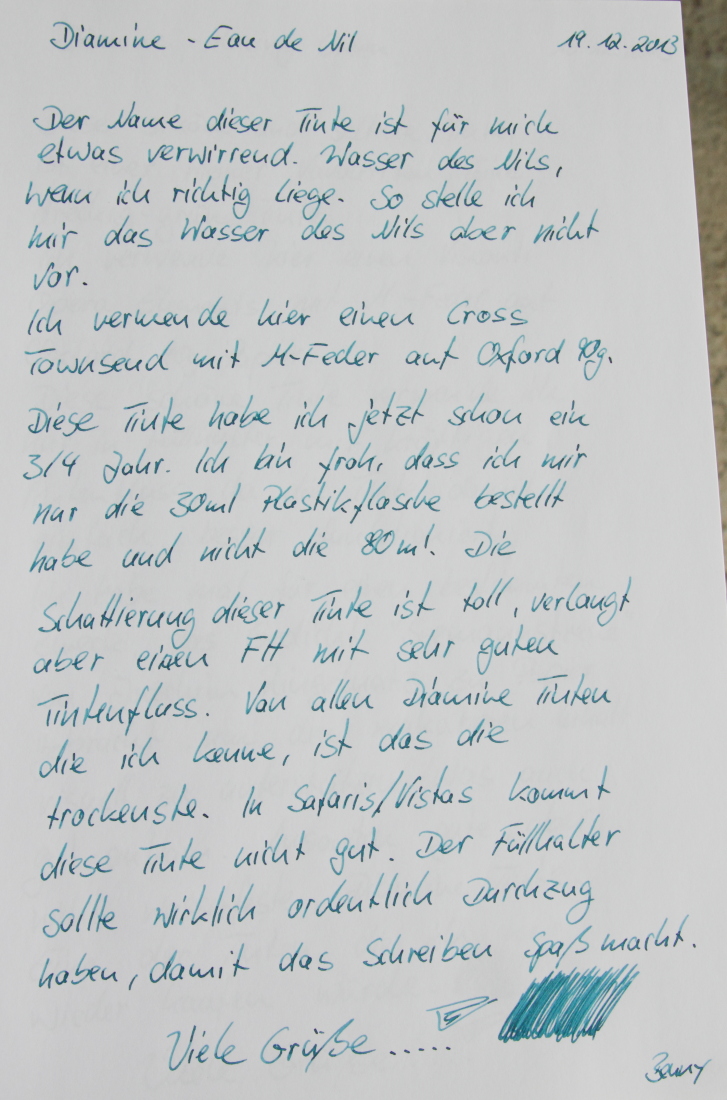 Diamine - Eau de Nil 19.12.2013
Der Name dieser Tinte ist für mich
etwas verwirrend. Wasser des Nils,
wenn ich richtig liege. So stelle ich
mir das Wasser des Nils aber nicht
vor.
Ich verwende hier einen Cross
Townsend mit M-Feder auf Oxford 90g.
Diese Tinte habe ich jetzt schon ein
3/4 Jahr. Ich bin froh, dass ich mir
nur die 30ml Plastikflasche bestellt
habe und nicht die 80ml. Die
Schattierung dieser Tinte ist toll, verlangt
aber einen FH mit sehr guten
Tintenfluss. Von allen Diamine Tinten
die ich kenne, ist das die
trockenste. In Safaris/Vistas kommt
diese Tinte nicht gut. Der Füllhalter
sollte wirklich ordentlich Durchzug
haben, damit das Schreiben Spaß macht.
Viele Grüße .....
Benny